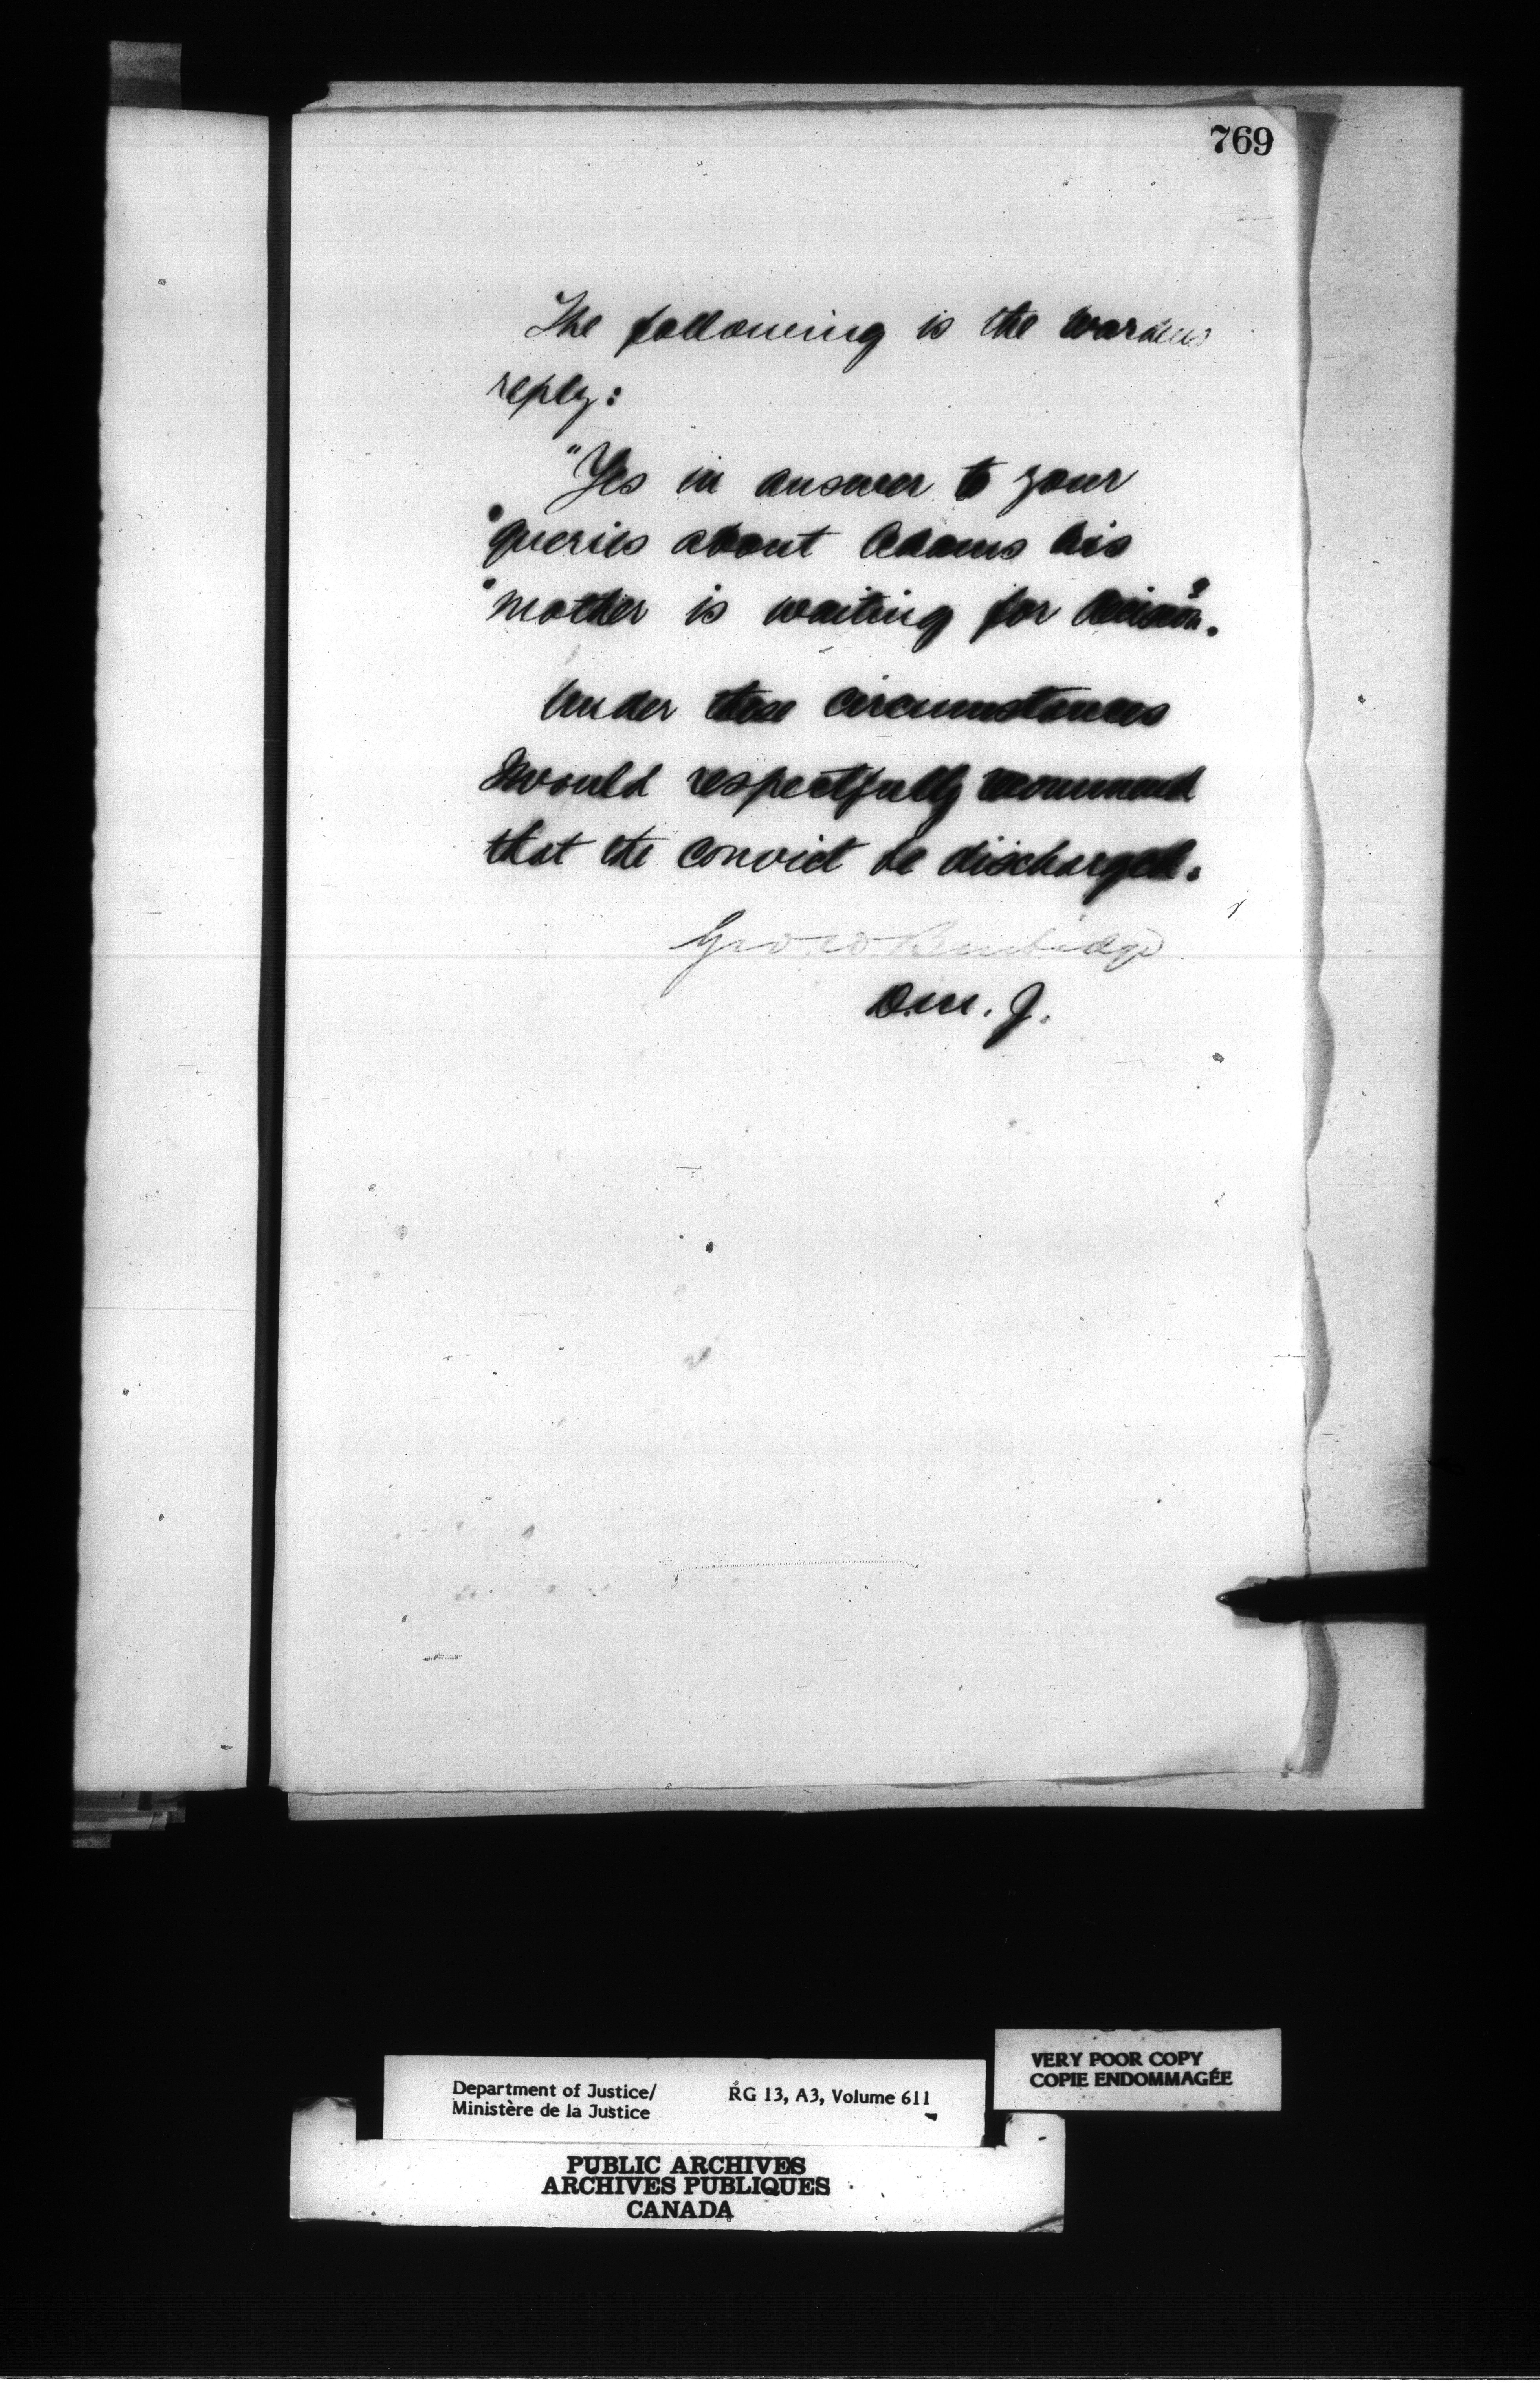 769
The following is the wardens
reply:
"Yes in answer to your
"queries about Adams his
"mother is waiting for decision".
Under these circumstances
I would respectfully recommend
that the convict be discharged.
Geo. W. Burbidge
D.M.J.
VERY POOR COPY
COPIE ENDOMMAGÉE
Department of Justice/ RG 13, A3, Volume 611
Ministère de la Justice
PUBLIC ARCHIVES
ARCHIVES PUBLIQUES
CANADA